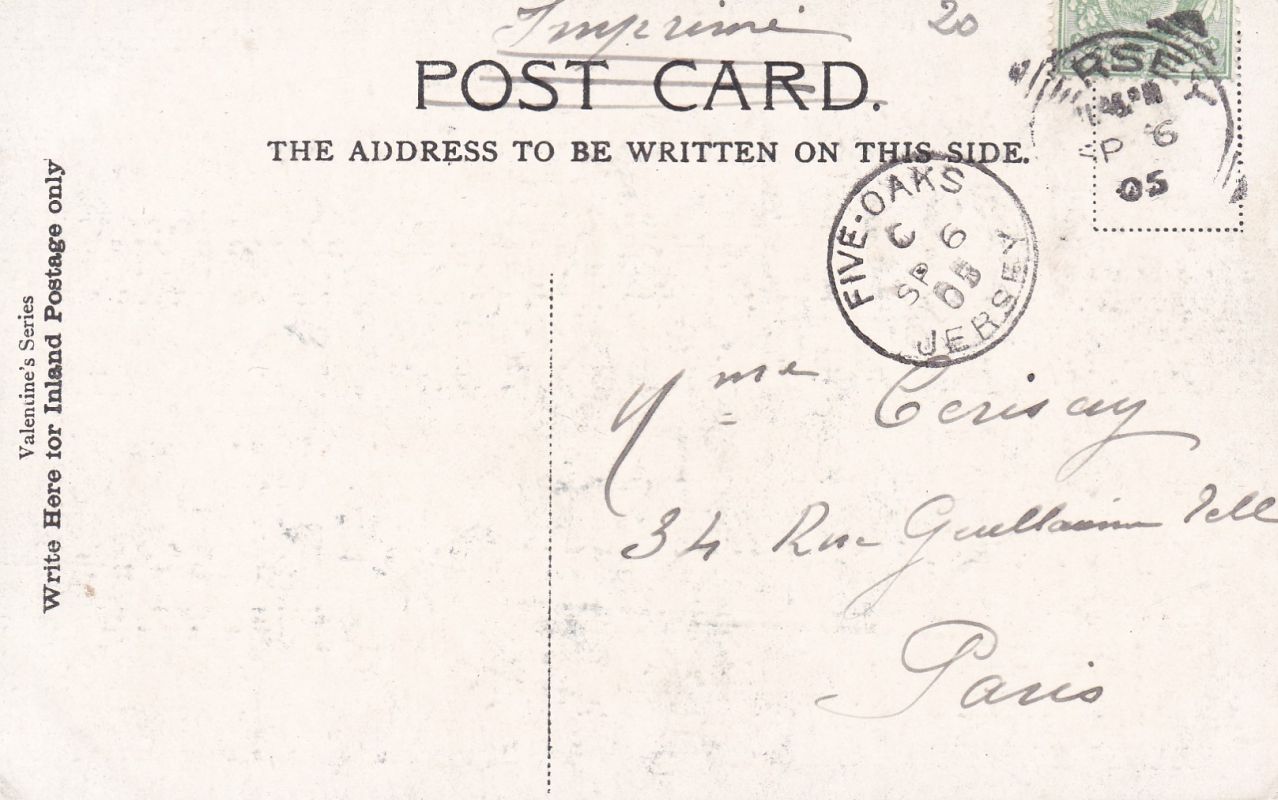 Imprimé 20
POST CARD.
THE ADDRESS TO BE WRITTEN ON THIS SIDE.
RSEY
SP 6
05
FIVE-OAKS
C 6
SP 05
JERSEY
Valentine's Series
Write Here for Inland Postage only
Mme Cerisay
34 Rue Guillaume Tell
Paris